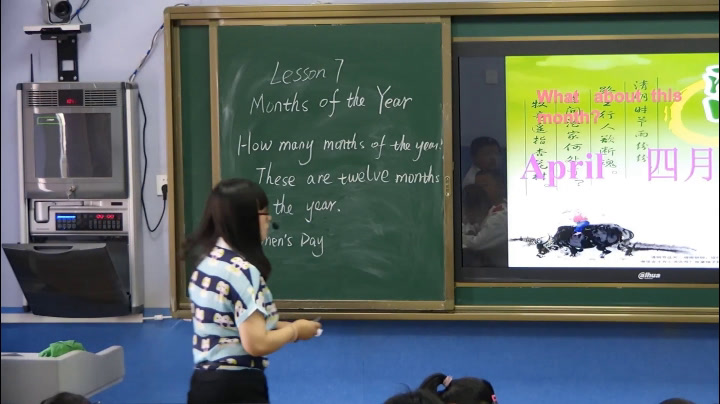 Lesson 7
Months of the Year
How many months of the year
These are twelve months
the year.
men's Day
What about this
month?
April 四月
清明时节雨纷纷
路上行人欲断魂。
牧童遥指杏花村
alhua